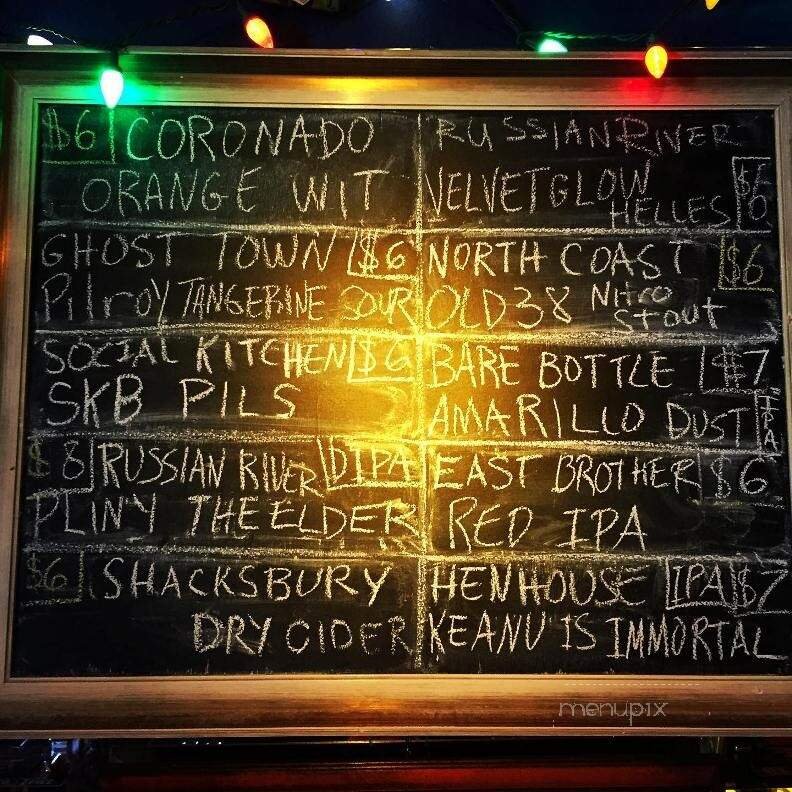 $6 CORONADO
ORANGE WIT
GHOST TOWN $6
Pilroy TANGERINE SOUR
SOCIAL KITCHEN $6
SKB PILS
$8 RUSSIAN RIVER DIPA
PLINY THE ELDER
$6 SHACKSBURY
DRY CIDER
RUSSIAN RIVER
VELVET GLOW
HELLES
NORTH COAST $6
OLD 38 Nitro
Stout
BARE BOTTLE $7
AMARILLO DUST IPA
EAST BROTHER $6
RED IPA
HENHOUSE IPA $7
KEANU IS IMMORTAL
menupix